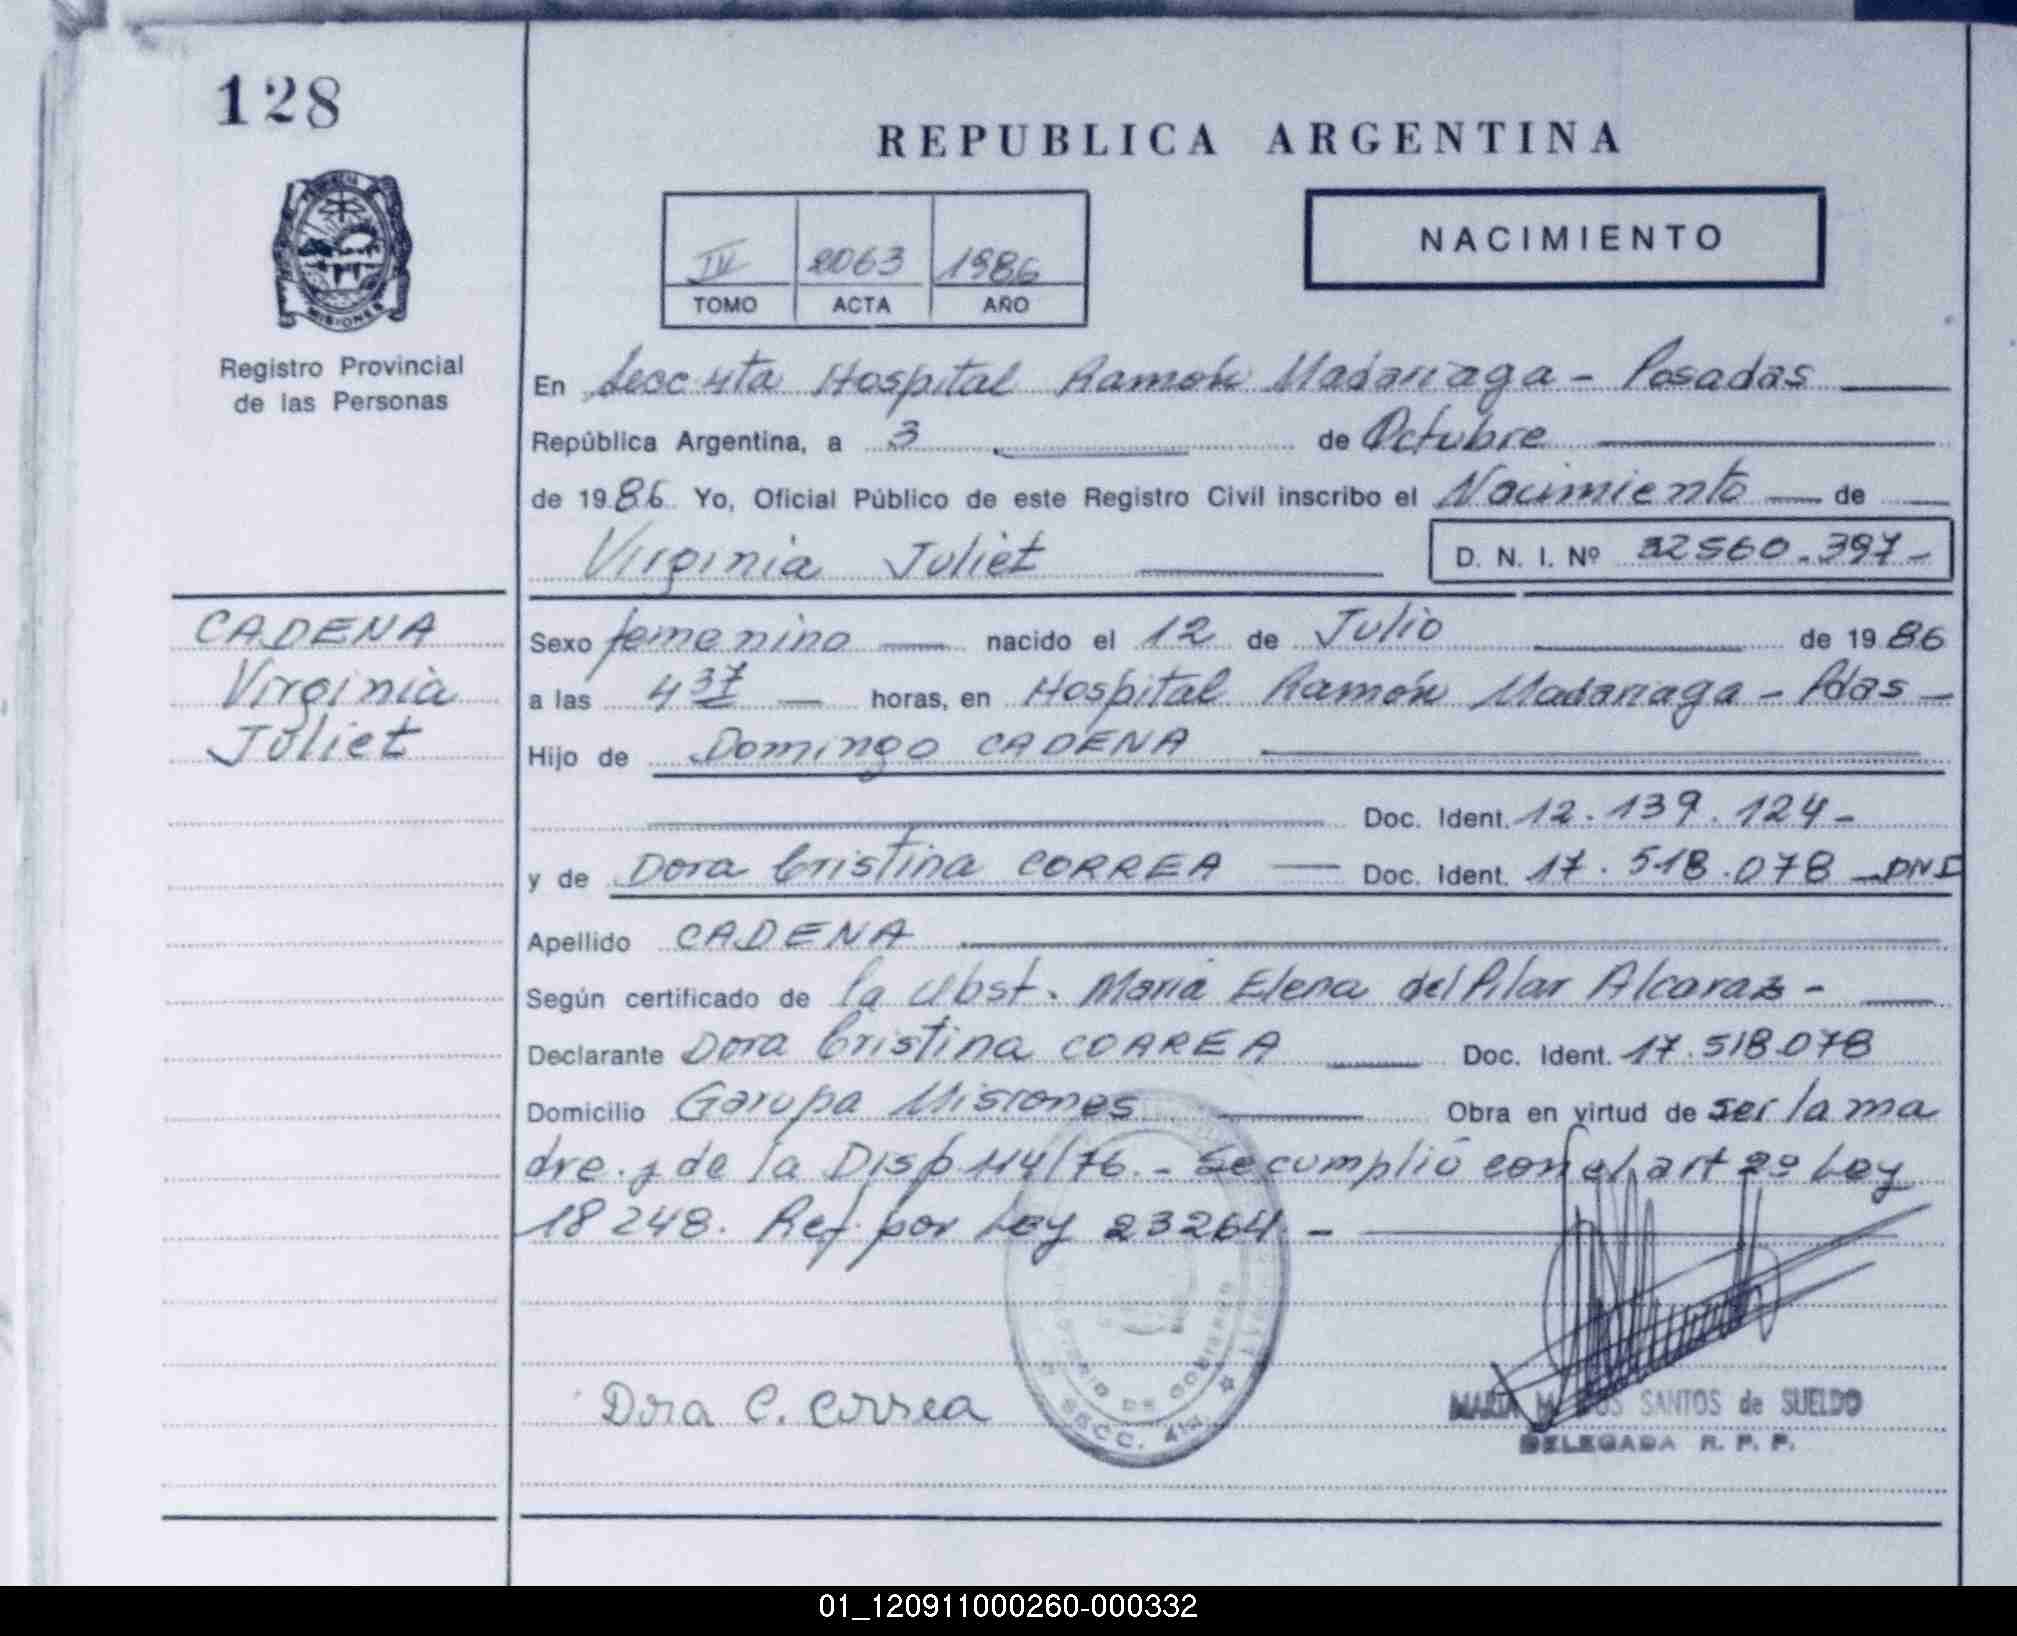 128
REPUBLICA ARGENTINA
IV 2063 1986
TOMO ACTA AÑO
NACIMIENTO
MISIONES
Registro Provincial
de las Personas
En Secc 4ta Hospital Ramón Madariaga - Posadas
República Argentina, a 3 de Octubre
de 1986 Yo, Oficial Público de este Registro Civil inscribo el Nacimiento de
Virginia Juliet D. N. I. Nº 32560.397-
CADENA
Virginia
Juliet
Sexo femenino nacido el 12 de Julio de 1986
a las 4 37 horas, en Hospital Ramón Madariaga - Pdas -
Hijo de Domingo CADENA
Doc. Ident. 12.139.124-
y de Dora Cristina CORREA Doc. Ident. 17.518.078 - DNI
Apellido CADENA
Según certificado de la Obst. Maria Elena del Pilar Alcaraz -
Declarante Dora Cristina CORREA Doc. Ident. 17.518.078
Domicilio Garupa Misiones Obra en virtud de ser la ma
dre. y de la Disp. 114/76. - Se cumplió con el art 2º Ley
18248. Ref. por Ley 23264. -
MINISTERIO DE GOBIERNO
SECC. 4ta
Dora C. Correa
MARIA M. DOS SANTOS de SUELDO
DELEGADA R. P. P.
01_120911000260-000332